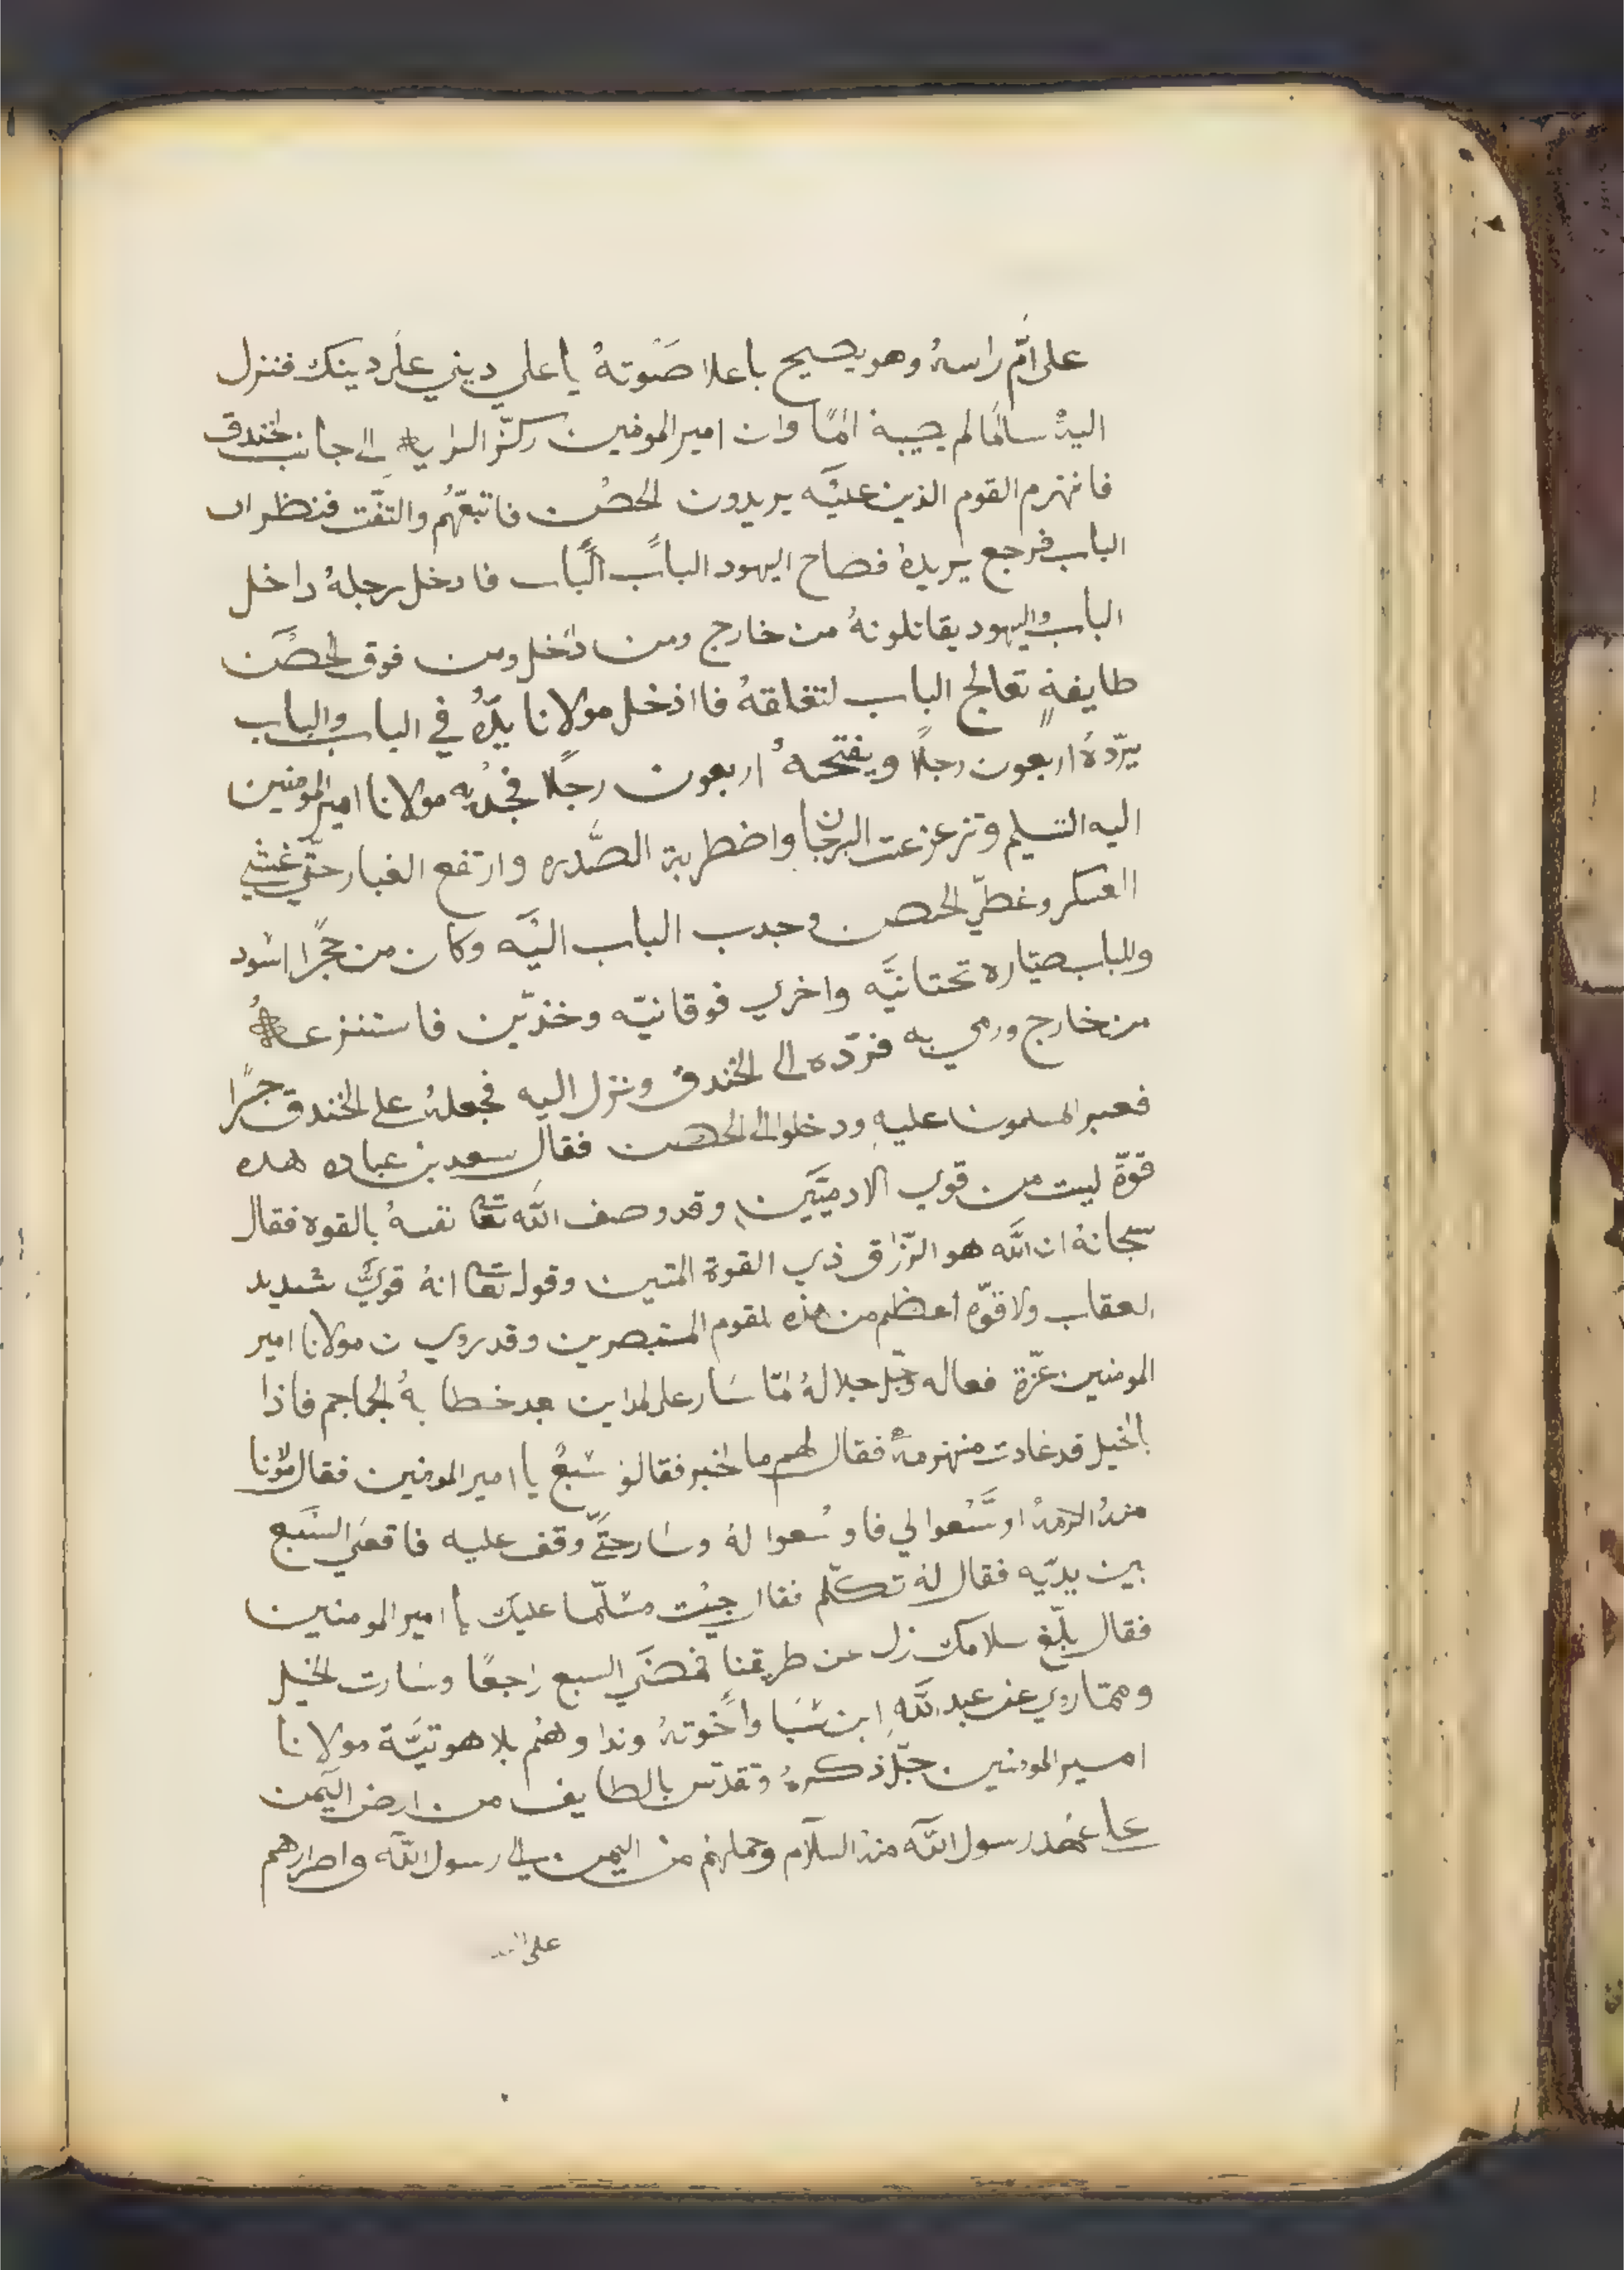 على ام راسه وهو يصيح باعلا صوته يا علي ديني على دينك فنزل
اليه سالما لم يصيبه وان امير المومنين ركز الرايه الى جانب الخندق
فانهزم القوم الذين عليه يريدون الحصن فاتبعهم والتفت فنظر الى
الباب فرجع يريده فصاح اليهود الباب الباب فادخل رجله داخل
الباب واليهود يقاتلونه من خارج ومن داخل ومن فوق الحصن
طايفة تعالج الباب لتغلقه فاادخل مولانا يده في الباب والباب
يرده اربعون رجلا ويفتحه اربعون رجلا فجدبه مولانا امير المومنين
اليه التسليم وتزعزعت البرجان واضطربة الصدره وارتفع الغبار حتى غشي
العسكر وغطي الحصن وجدب الباب اليه وكان من حجرا اسود
وللباب صياره تحتانيه واخري فوقانيه وخدين فاستنزعه
من خارج ورمي به فرده الى الخندق ونزل اليه فجعله على الخندق جسرا
فعبر المسلمون عليه ودخلوا الى الحصن فقال سعد بن عباده هده
قوة ليست من قوي الادميين وقد وصف الله تعا نفسه بالقوه فقال
سبحانه ان الله هو الرزاق ذي القوة المتين وقوله تعا انه قوي شديد
العقاب ولا قوه اعظم من هذه لقوم المستبصرين وقد روي ن مولانا امير
المومنين عزة فعاله وجل جلاله لما سار على المداين بعد خطابه الجماجم فاذا
بالخيل قد غادت منهزمة فقال لهم ما الخبر فقالو سبع يا امير المومنين فقال مولانا
منه الرحمه اوسعوا لي فاوسعوا له وسار حتى وقف عليه فاقعي السبع
بين يديه فقال له تكلم فقاا جيت مسلما عليك يا امير المومنين
فقال بلغ سلامك زل عن طريقنا فمضي السبع راجعا وسارت الخيل
ومما روي عن عبد الله ابن سبا واخوته وندا وهم بلاهوتية مولانا
امير المومنين جل ذكره وتقدس بالطايف من ارض اليمن
على عهد رسول الله منه السلام وحملهم من اليمن الى رسول الله واصرارهم